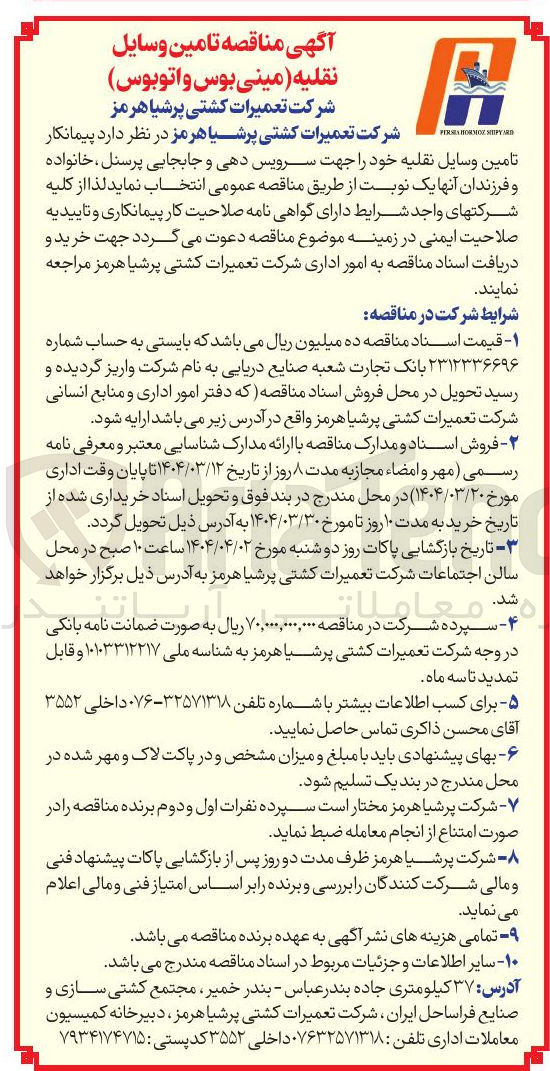 آگهی مناقصه تامین وسایل
نقلیه (مینی بوس و اتوبوس)
شرکت تعمیرات کشتی پرشیا هرمز
PERSIA HORMOZ SHIPYARD
شرکت تعمیرات کشتی پرشیا هرمز در نظر دارد پیمانکار
تامین وسایل نقلیه خود را جهت سرویس دهی و جابجایی پرسنل، خانواده
و فرزندان آنها یک نوبت از طریق مناقصه عمومی انتخاب نماید لذا از کلیه
شرکتهای واجد شرایط دارای گواهی نامه صلاحیت کار پیمانکاری و تاییدیه
صلاحیت ایمنی در زمینه موضوع مناقصه دعوت می گردد جهت خرید و
دریافت اسناد مناقصه به امور اداری شرکت تعمیرات کشتی پرشیا هرمز مراجعه
نمایند.
شرایط شرکت در مناقصه:
۱- قیمت اسناد مناقصه ده میلیون ریال می باشد که بایستی به حساب شماره
۲۳۱۲۳۳۶۶۹۶ بانک تجارت شعبه صنایع دریایی به نام شرکت واریز گردیده و
رسید تحویل در محل فروش اسناد مناقصه (که دفتر امور اداری و منابع انسانی
شرکت تعمیرات کشتی پرشیا هرمز واقع در آدرس زیر می باشد ارایه شود.
۲- فروش اسناد و مدارک مناقصه با ارائه مدارک شناسایی معتبر و معرفی نامه
رسمی (مهر و امضاء مجاز به مدت ۸ روز از تاریخ ۱۴۰۴/۰۳/۱۲ تا پایان وقت اداری
مورخ ۱۴۰۴/۰۳/۲۰) در محل مندرج در بند فوق و تحویل اسناد خریداری شده از
تاریخ خرید به مدت ۱۰ روز تا مورخ ۱۴۰۴/۰۳/۳۰ به آدرس ذیل تحویل گردد.
۳- تاریخ بازگشایی پاکات روز دو شنبه مورخ ۱۴۰۴/۰۴/۰۲ ساعت ۱۰ صبح در محل
سالن اجتماعات شرکت تعمیرات کشتی پرشیا هرمز به آدرس ذیل برگزار خواهد
شد.
۴- سپرده شرکت در مناقصه ۷۰,۰۰۰,۰۰۰,۰۰۰ ریال به صورت ضمانت نامه بانکی
در وجه شرکت تعمیرات کشتی پرشیا هرمز به شناسه ملی ۱۰۱۰۳۳۱۲۲۱۷ و قابل
تمدید تا سه ماه.
۵- برای کسب اطلاعات بیشتر با شماره تلفن ۳۲۵۷۱۳۱۸-۰۷۶ داخلی ۳۵۵۲
آقای محسن ذاکری تماس حاصل نمایید.
۶- بهای پیشنهادی باید با مبلغ و میزان مشخص و در پاکت لاک و مهر شده در
محل مندرج در بند یک تسلیم شود.
۷- شرکت پرشیا هرمز مختار است سپرده نفرات اول و دوم برنده مناقصه را در
صورت امتناع از انجام معامله ضبط نماید.
۸- شرکت پرشیا هرمز ظرف مدت دو روز پس از بازگشایی پاکات پیشنهاد فنی
و مالی شرکت کنندگان را بررسی و برنده را بر اساس امتیاز فنی و مالی اعلام
می نماید.
۹- تمامی هزینه های نشر آگهی به عهده برنده مناقصه می باشد.
۱۰- سایر اطلاعات و جزئیات مربوط در اسناد مناقصه مندرج می باشد.
آدرس: ۳۷ کیلومتری جاده بندرعباس - بندر خمیر، مجتمع کشتی سازی و
صنایع فراساحل ایران، شرکت تعمیرات کشتی پرشیا هرمز، دبیرخانه کمیسیون
معاملات اداری تلفن: ۰۷۶۳۲۵۷۱۳۱۸ داخلی ۳۵۵۲ کدپستی: ۷۹۳۴۱۷۴۷۱۵